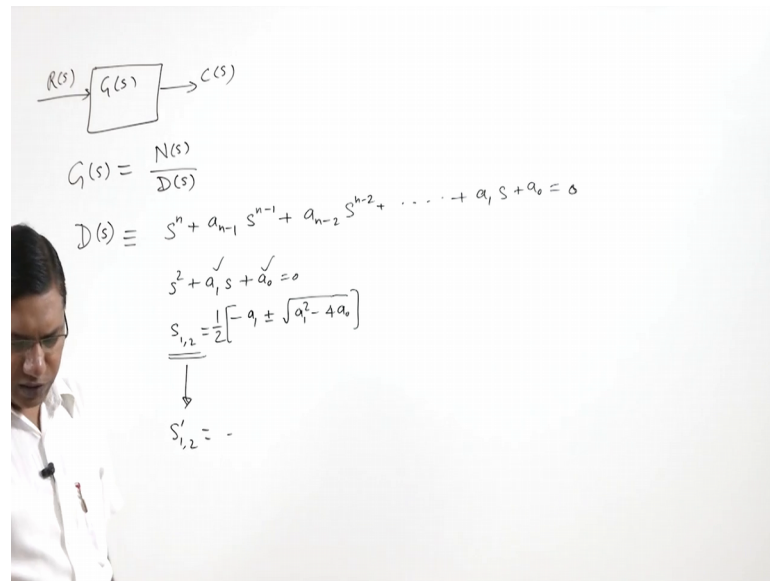 R(s) G(s) C(s)
G(s) = N(s) / D(s)
D(s) ≡ sⁿ + aₙ₋₁ sⁿ⁻¹ + aₙ₋₂ sⁿ⁻² + ..... + a₁ s + a₀ = 0
s² + a₁ s + a₀ = 0
s₁,₂ = 1/2 [-a₁ ± √(a₁² - 4a₀)]
s'₁,₂ = -